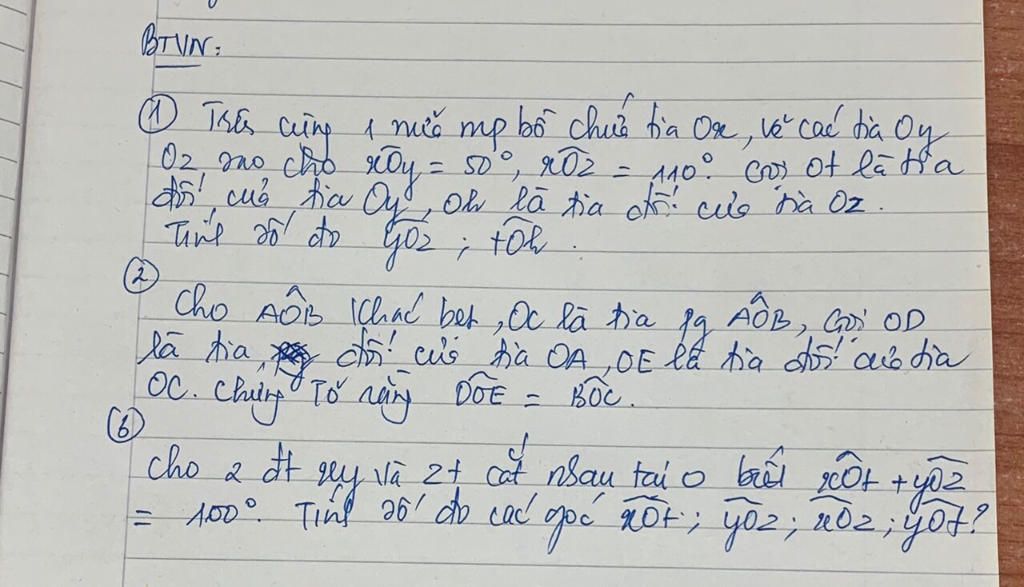 BTVN:
① Trên cùng 1 nửa mp bờ chứa tia Ox, vẽ các tia Oy
Oz, sao cho xÔy = 50°, xÔz = 110°. Gọi Ot là tia
đối của tia Oy, Oh là tia đối của tia Oz.
Tính số đo yÔz ; tÔh.
②
Cho AÔB khác bẹt, OC là tia pg AÔB, Gọi OD
là tia đối của tia OA, OE là tia đối của tia
OC. Chứng tỏ rằng DÔE = BÔC.
⑥
Cho 2 đt xy và zt cắt nhau tại O biết xÔt + yÔz
= 100°. Tính số đo các góc xÔt ; yÔz ; xÔz ; yÔt ?